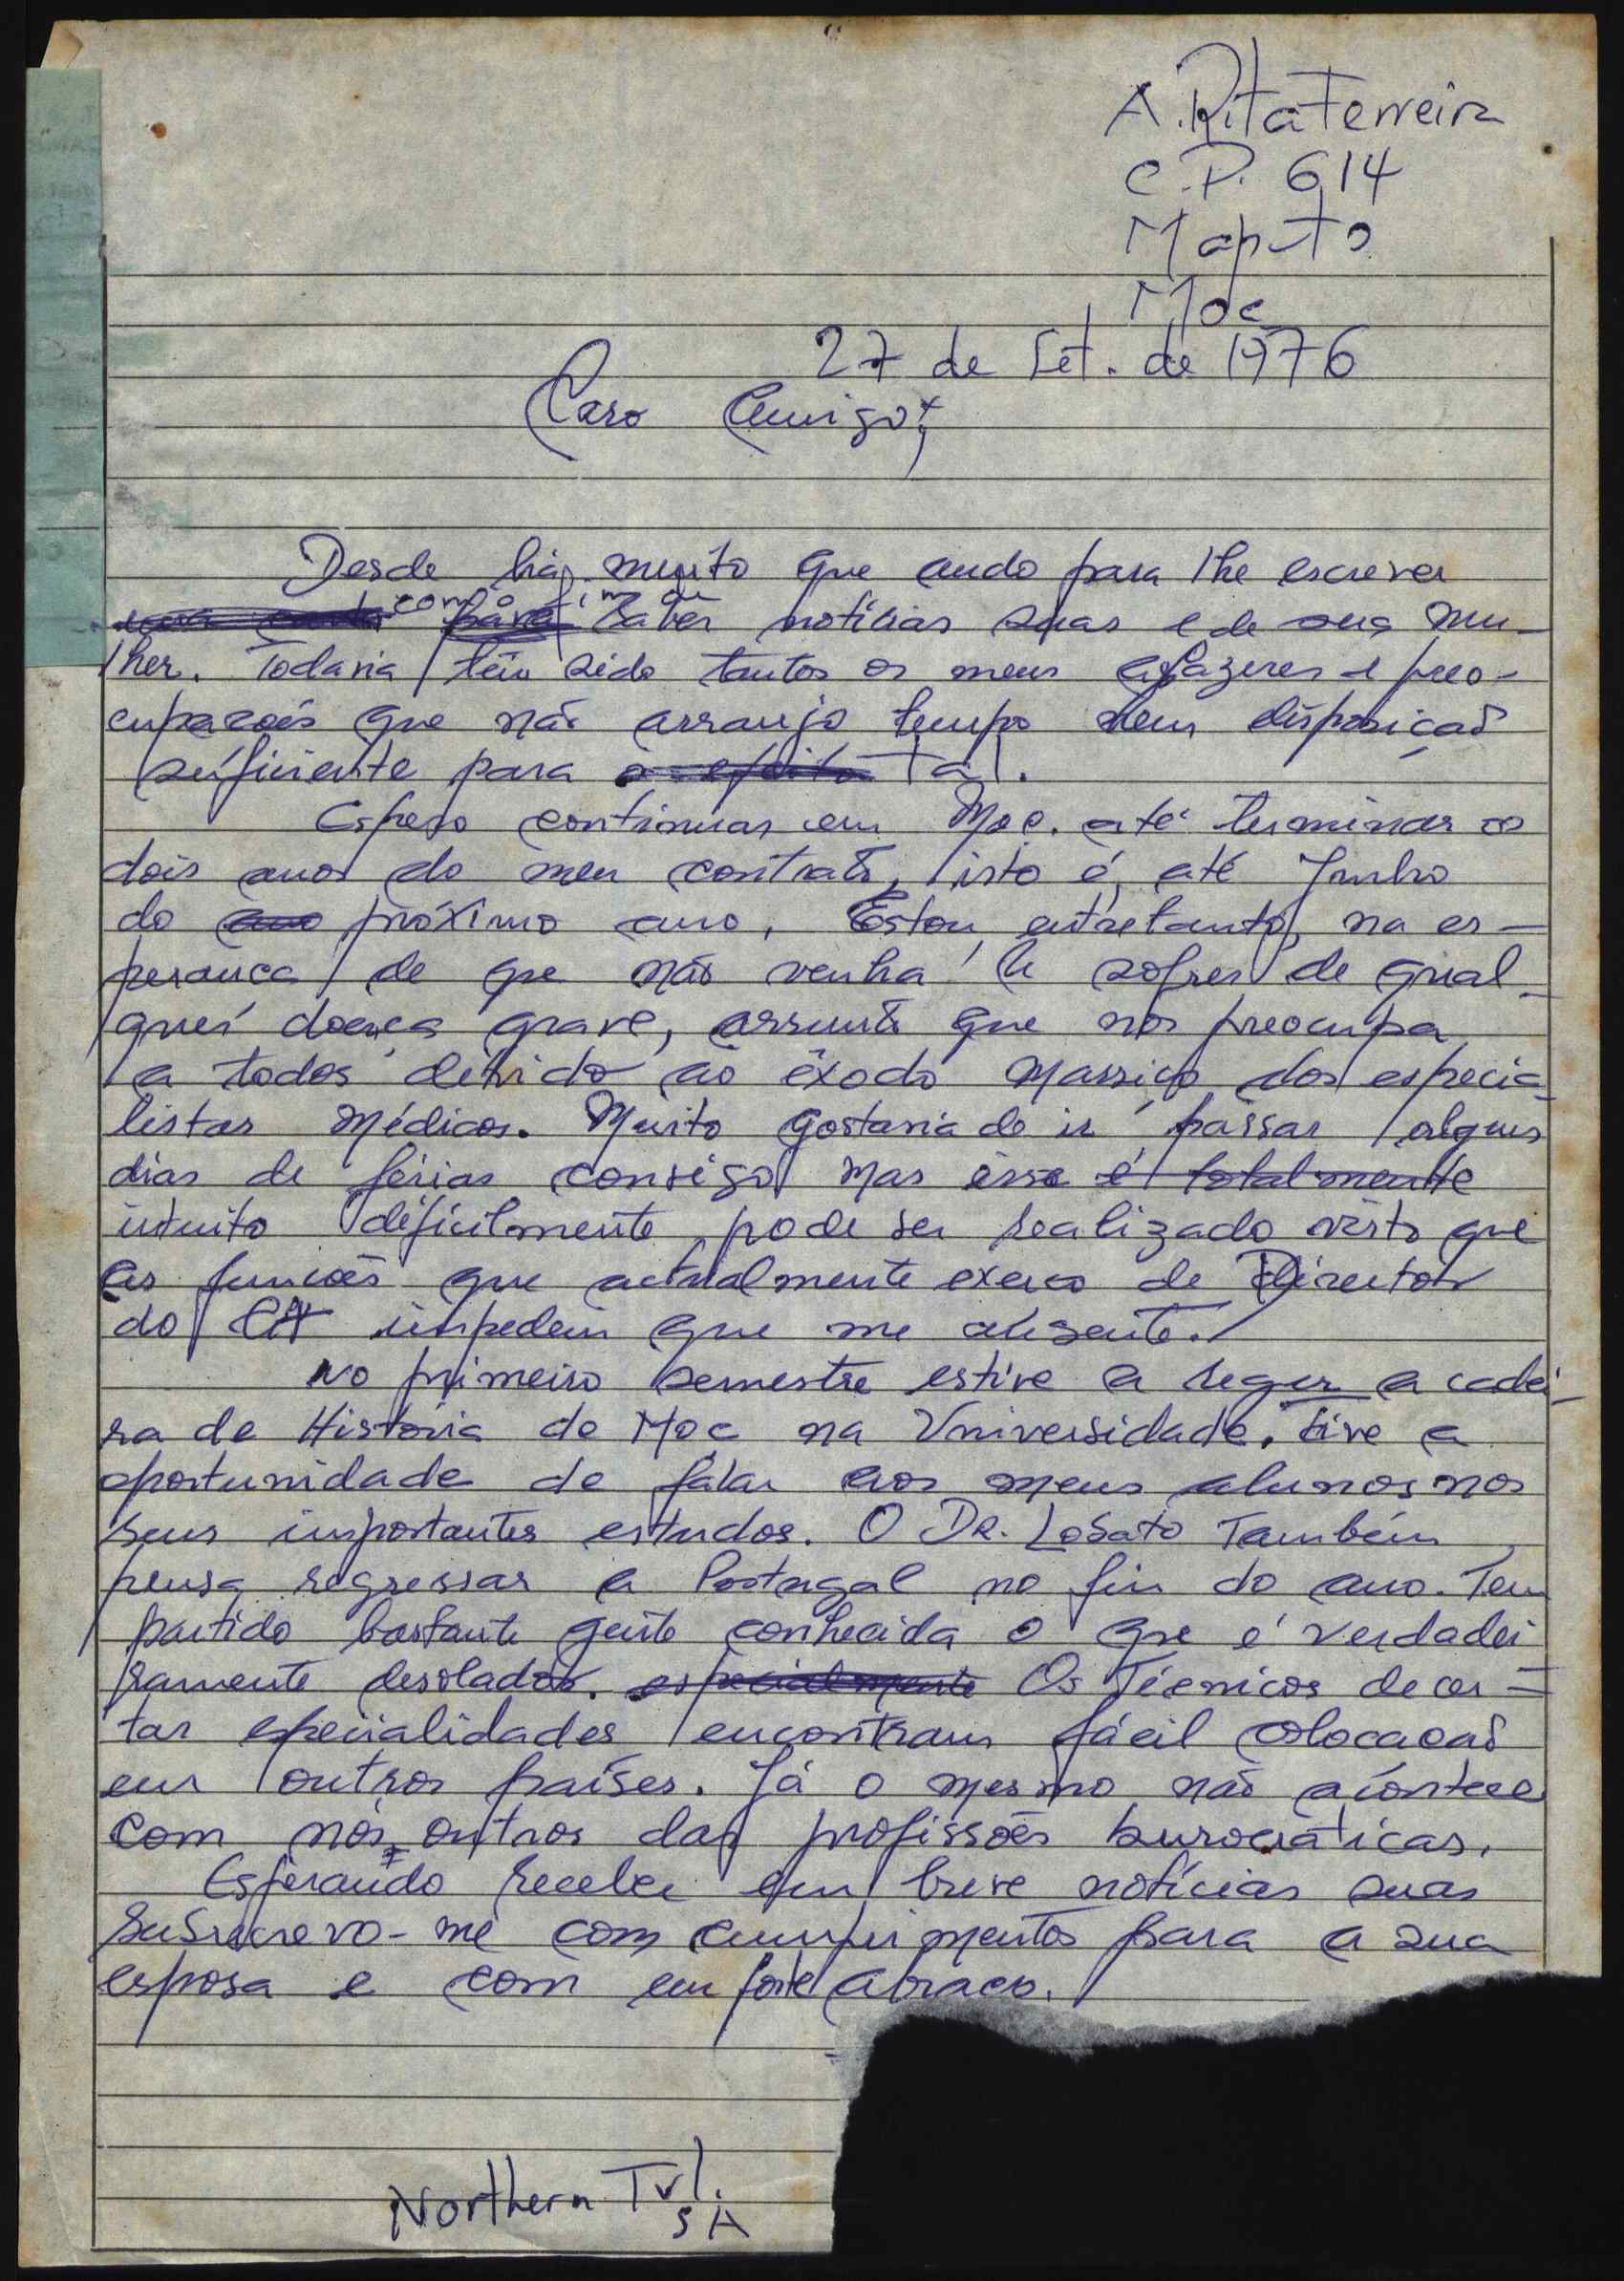 A. Rita Ferreira
C.P. 614
Maputo
Moc
27 de Set. de 1976
Caro Amigo,
Desde há muito que ando para lhe escrever
com o fim de
saber notícias suas e de sua mu-
lher. Todavia têm sido tantos os meus afazeres e preo-
cupacões que não arranjo tempo nem disposição
suficiente para tal.
Espero continuar em Moc. até terminar os
dois anos do meu contrato, isto é, até Junho
do próximo ano. Estou, entretanto, na es-
peranca de que não venha a sofrer de qual-
quer doença grave, assunto que nos preocupa
a todos devido ao êxodo massiço dos especia-
listas médicos. Muito gostaria de ir passar alguns
dias de férias consigo mas esse é totalmente
intuito dificilmente pode ser realizado visto que
as funcões que actualmente exerco de Director
do impedem que me ausente.
No primeiro semestre estive a reger a cadei-
ra de História de Moc na Universidade. Tive a
oportunidade de falar aos meus alunos nos
seus importantes estudos. O Dr. Lobato também
pensa regressar a Portugal no fim do ano. Tem
partido bastante gente conhecida o que é verdadei
ramente desolador. especialmente Os Técnicos de cer-
tas especialidades encontram fácil colocacão
em outros países. Já o mesmo não acontece
com nós, outros das profissões burocráticas.
Esperando receber em breve notícias suas
subscrevo-me com cumprimentos para a sua
esposa e com um forte abraco.
Northern Tvl.
SA